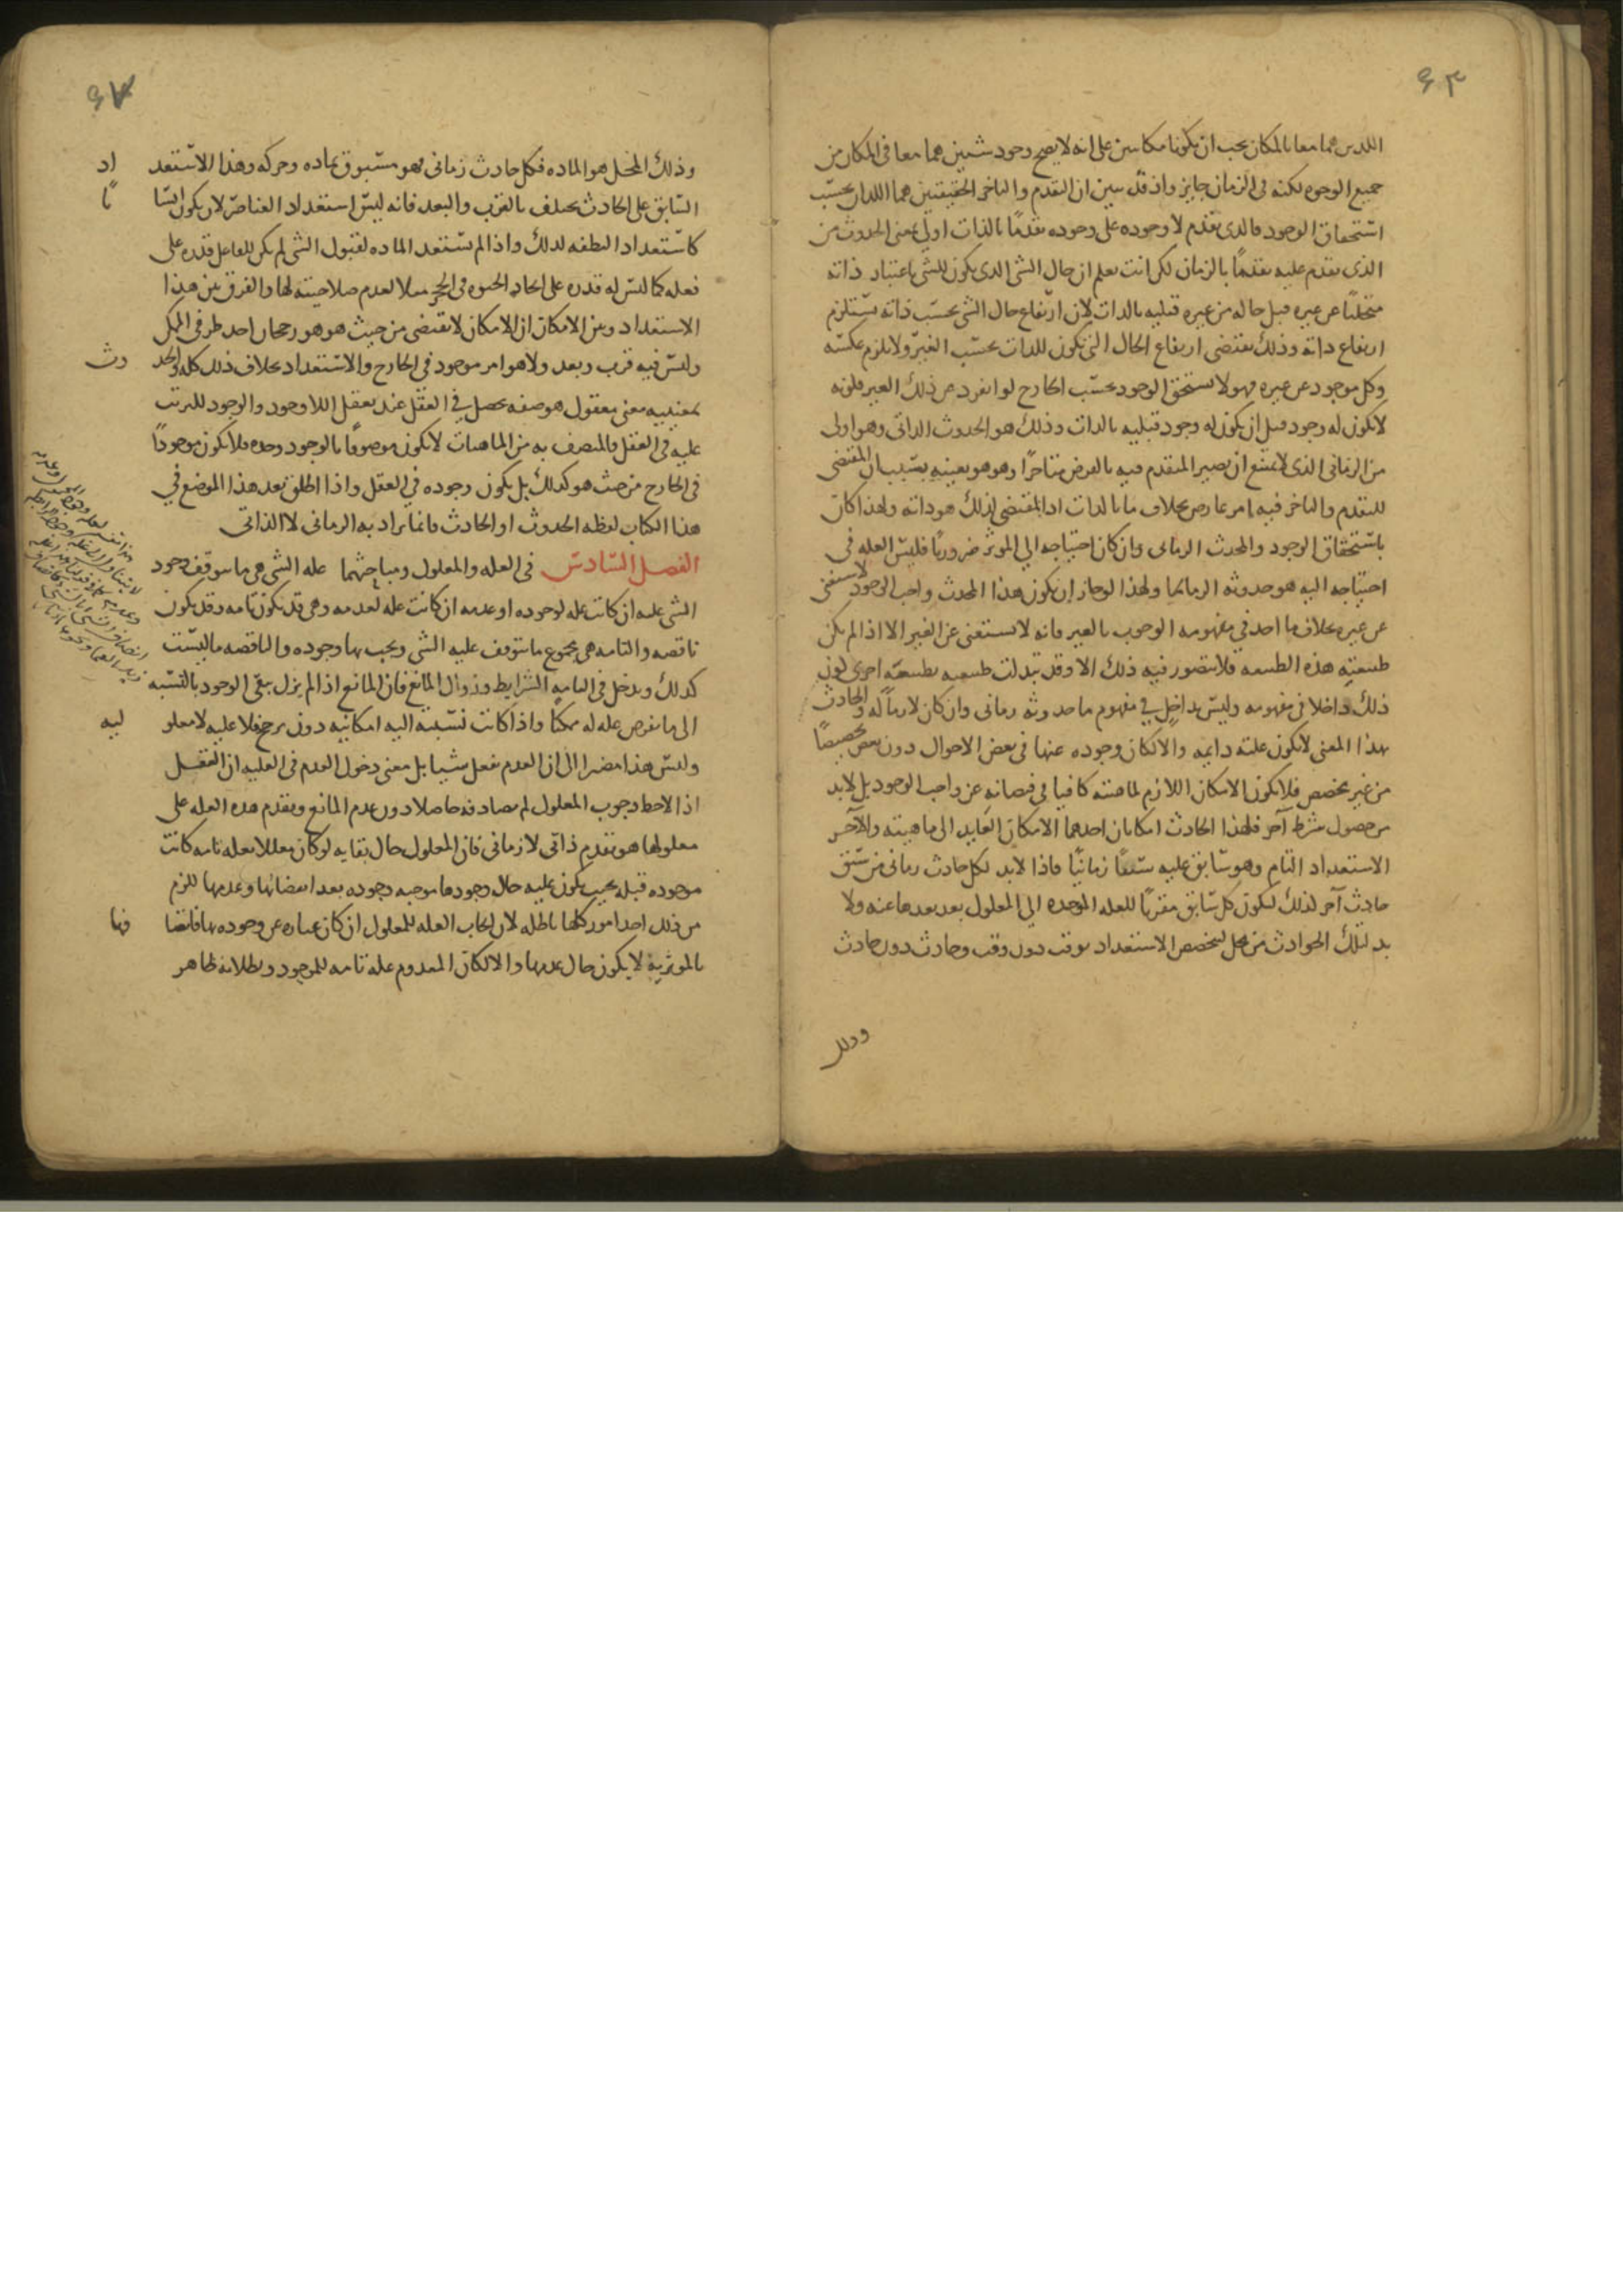 ٦٣
اللذين هما معا بالمكان يجب ان يكونا مكانين على انه لا يصح وجود شيئين هما معا في المكان من
جميع الوجوه لكنه في الزمان جايز واذ قد تبين ان التقدم والتاخر الحقيقيين هما اللذان بحسب
استحقاق الوجود فالذي تقدم لا وجوده على وجوده تقدمًا بالذات اولى بمعنى الحدوث من
الذي تقدم عليه تقدمًا بالزمان لكن انت تعلم ان حال الشي الذي يكون للشي باعتبار ذاته
متخليًا عن غيره قبل حاله من غيره قبليه بالذات لان ارتفاع حال الشي بحسب ذاته يستلزم
ارتفاع ذاته وذلك يقتضي ارتفاع الحال التي تكون للذات بحسب الغير ولا يلزم عكسه
وكل موجود عن غيره فهو لا يستحق الوجود بحسب الخارج لو انفرد عن ذلك الغير فلونه
لا يكون له وجود قبل ان يكون له وجود قبليه بالذات وذلك هو الحدوث الذاتي وهو اولى
من الزماني الذي لا يمتنع ان يصير المتقدم فيه بالفرض متاخرًا وهو هو بعينه بسبب ان المقتضي
للتقدم والتاخر فيه امر عارض بخلاف ما بالذات اذ المقتضي لذلك هو ذاته ولهذا كان
باستحقاق الوجود والمحدث الزماني وان كان احتياجه الي الموثر ضروريًا فليس العله في
احتياجه اليه هو حدوثه الزماني ولهذا لو جاز ان يكون هذا المحدث واجب الوجود لاستغنى
عن غيره بخلاف ما اخد في مفهومه الوجوب بالغير فانه لا يستغنى عن الغير الا اذا لم يكن
طبيعته هذه الطبيعه فلا يتصور فيه ذلك الا وقد تبدلت طبيعته بطبيعه اخرى لكون
ذلك داخلا في مفهومه وليس بداخل في مفهوم ما حدوثه زماني وان كان لازمًا له والحادث
بهذا المعنى لا يكون علته دايمه والا لكان وجوده عنها في بعض الاحوال دون بعض تخصيصًا
من غير مخصص فلا يكون الامكان اللازم لماهيته كافيا في فيضانه عن واجب الوجود بل لا بد
من حصول شرط آخر فلهذا الحادث امكانان احدهما الامكان العايد الى ماهيته والآخر
الاستعداد التام وهو سابق عليه سبقًا زمانيًا فاذا لا بد لكل حادث زماني من سبق
حادث آخر لذلك ليكون كل سابق مقربًا للعله الموجده الي المعلول بعد بعدها عنه ولا
بد لتلك الحوادث من محل ليتخصص الاستعداد بوقت دون وقت وحادث دون حادث
وذلك
وذلك المحل هو الماده فكل حادث زماني فهو مسبوق بماده وحركه وهذا الاستعداد
السابق على الحادث يختلف بالقرب والبعد فانه ليس استعداد العناصر لان يكون انسانًا
كاستعداد النطفه لذلك واذا لم تستعد الماده لقبول الشي لم يكن للفاعل قدره على
فعله كما ليس له قدره على ايجاد الحيوه في الحجر مثلا لعدم صلاحيته لها والفرق بين هذا
الاستعداد وبين الامكان ان الامكان لا يقتضي من حيث هو هو رجحان احد طرفي الممكن
وليس فيه قرب وبعد ولا هو امر موجود في الخارج والاستعداد بخلاف ذلك كله والحدوث
بمعنييه معنى معقول هو صفه تحصل في العقل عند تعقل اللاوجود والوجود المرتب
عليه في العقل فالمتصف به من الماهيات لا يكون موصوفًا بالوجود وحده فلا يكون موجودًا
في الخارج من حيث هو كذلك بل يكون وجوده في العقل واذا اطلق بعد هذا الموضع في
هذا الكتاب لفظه الحدوث او الحادث فانما يراد به الزماني لا الذاتي
الفصل السادس في العله والمعلول ومباحثهما عله الشي هي ما يتوقف وجود
الشي عليه ان كانت عله لوجوده او عدمه ان كانت عله لعدمه وهي قد تكون تامه وقد تكون
ناقصه والتامه هي مجموع ما يتوقف عليه الشي ويجب بها وجوده والناقصه ما ليست
كذلك ويدخل في التامه الشرايط وزوال المانع فان المانع اذا لم يزل يبقى الوجود بالنسبه
الى ما يفرض عله له ممكنًا واذا كانت نسبته اليه امكانيه دون مرجح فلا عليه لا معلوليه
وليس هذا مصيرا الى ان العدم يفعل شيا بل معنى دخول العدم في العليه ان العقل
اذا لاحظ وجوب المعلول لم يصادفه حاصلا دون عدم المانع وتقدم هذه العله على
معلولها هو تقدم ذاتي لا زماني فان المعلول حال بقايه لو كان معللا بعله تامه كانت
موجوده قبله بحيث يكون عليه حال وجودها موجبه وجوده بعد انقضائها وعدمها للزم
من ذلك احد امور كلها باطله لان ايجاب العله للمعلول ان كان عباره عن وجوده بها فاتصافها
بالموثرية لا يكون حال عدمها والا لكان المعدوم عله تامه للموجود وبطلانه ظاهر